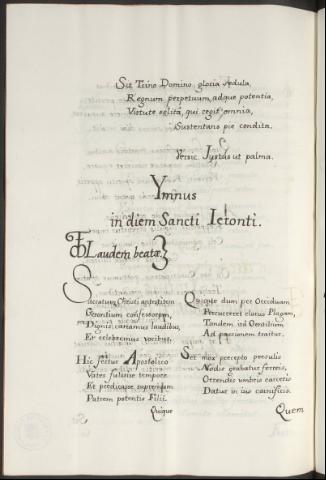 Sit Trino Domino gloria sedula,
Regnum perpetuum, adque potentia,
Virtute solita, qui regit omnia,
Sustentans pie condita.
Versic. Justus ut palma.
Ymnus
in diem Sancti Ieronti.
Laudem beatæ
Sacratum Christi antistitem
Gerontium confessorem,
Dignis canamus laudibus,
Et celebremus vocibus.
Hic fertur Apostolico
Vates fulsisse tempore
Et predicasse supremum
Patrem potentis Filii.
Quique
Quique dum per Occiduam
Percurreret clarus Plagam,
Tandem ad Gentilium
Ad passionem traitur.
Set mox percepto presulis
Nodis grabatur ferreis,
Otrendis umbris carceris
Datur in ius carnificis.
Quem